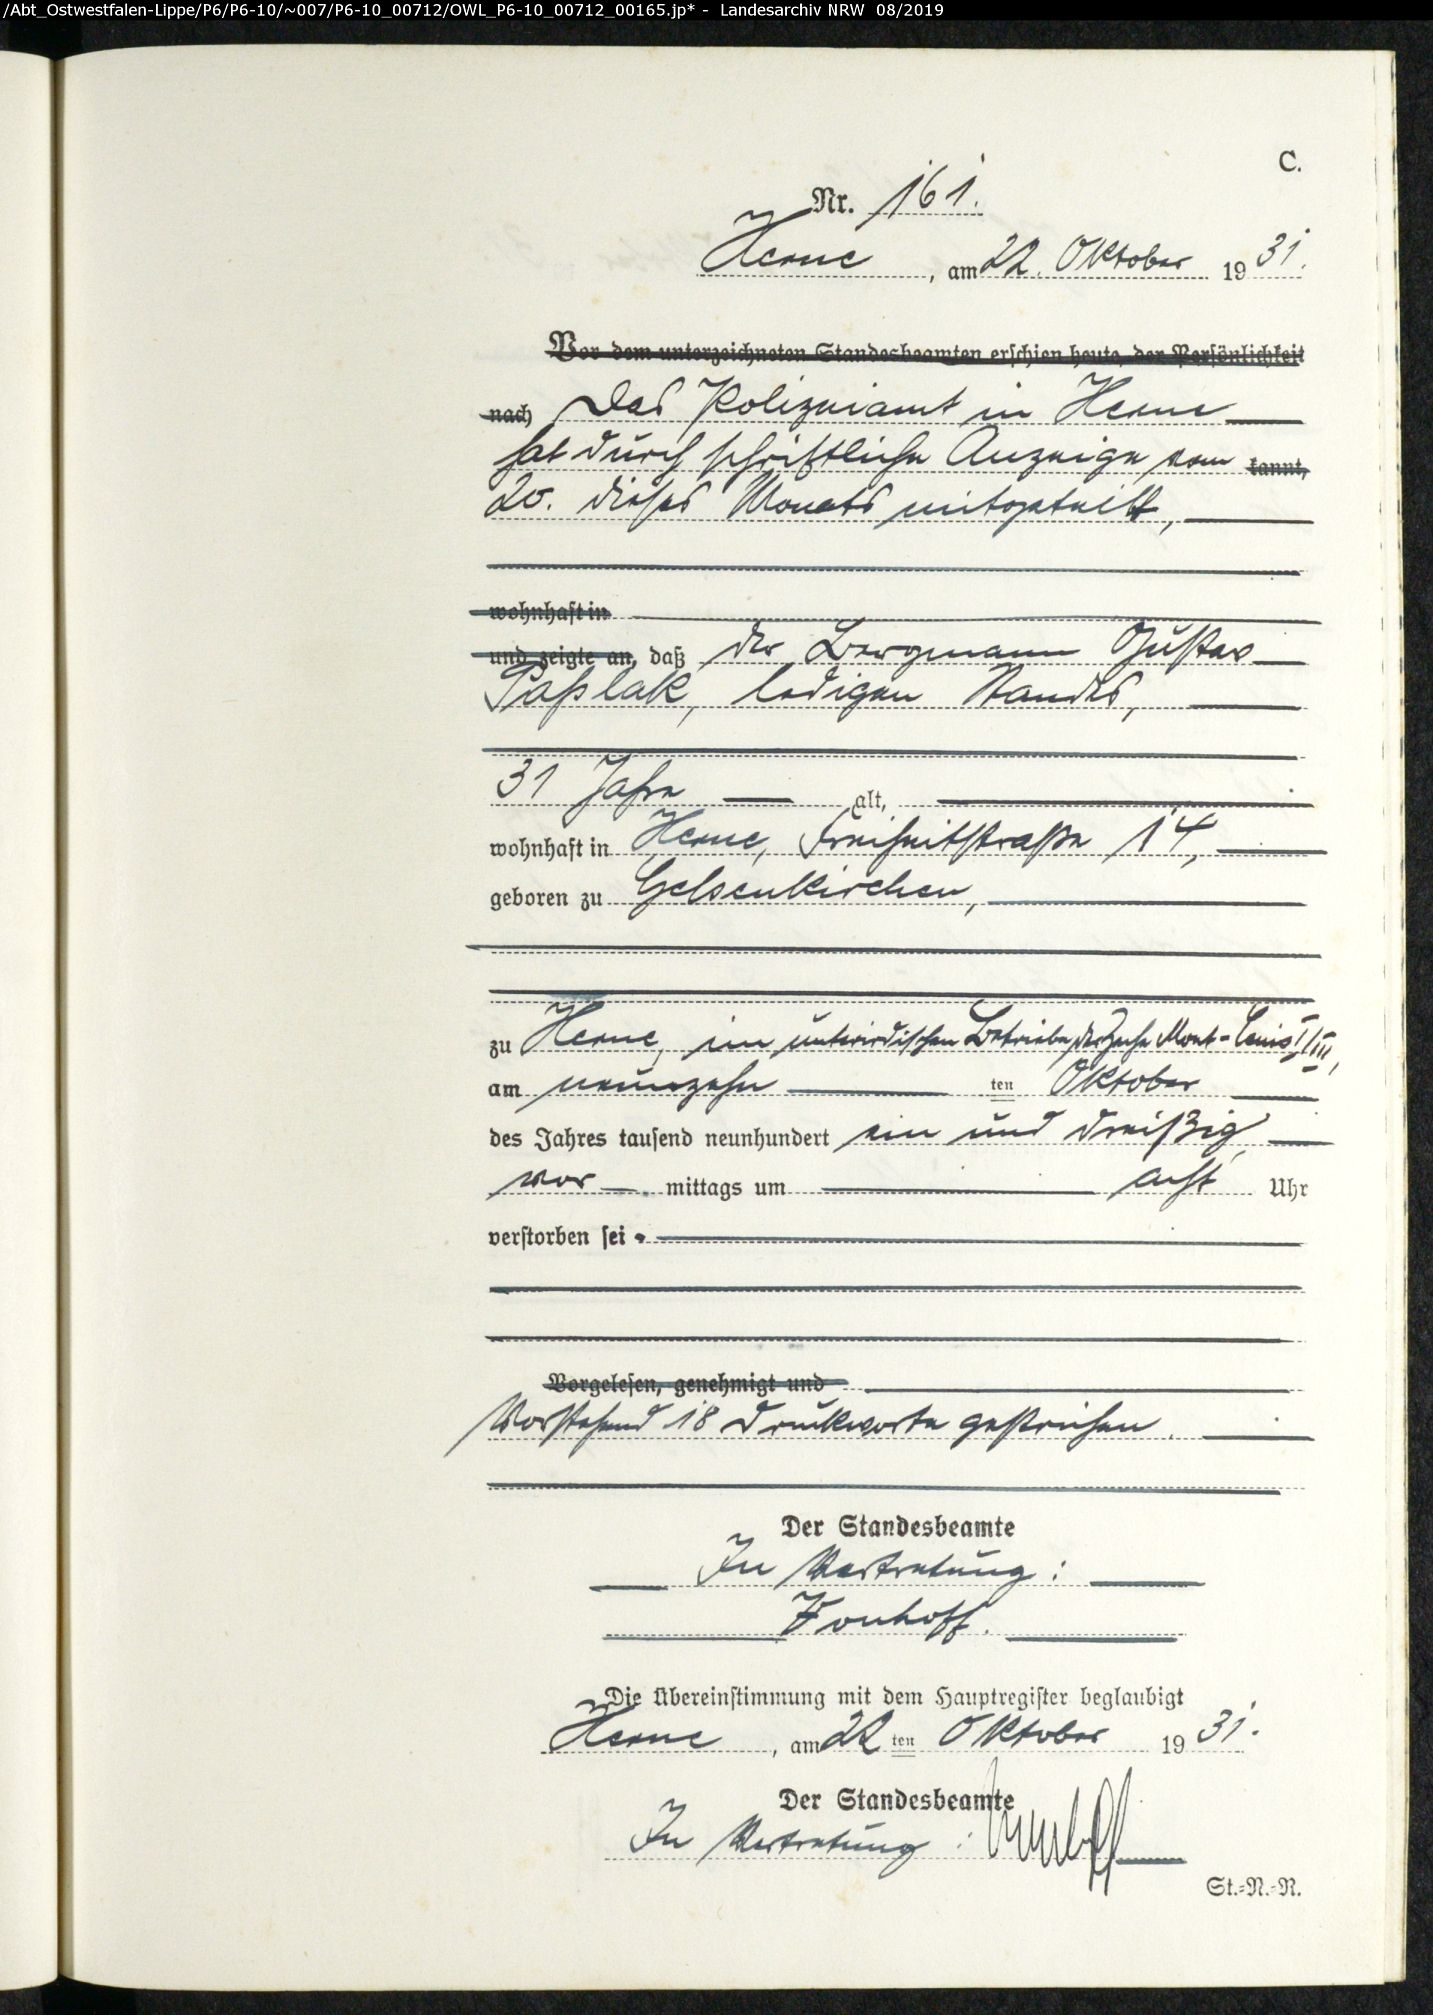 /Abt_Ostwestfalen-Lippe/P6/P6-10/~007/P6-10_00712/OWL_P6-10_00712_00165.jp* - Landesarchiv NRW 08/2019
C.
Nr. 161.
Herne, am 22. Oktober 1931.
Vor dem unterzeichneten Standesbeamten erschien heute, der Persönlichkeit
nach Das Polizeiamt in Herne
hat durch schriftliche Anzeige vom kannt,
20. dieses Monats mitgeteilt,
wohnhaft in
und zeigte an, daß der Bergmann Gustav
Paßlak, ledigen Standes,
31 Jahre alt,
wohnhaft in Herne, Freiheitstraße 14,
geboren zu Gelsenkirchen,
zu Herne, im unterirdischen Betriebe der Zeche Mont-Cenis I/III,
am neunzehn ten Oktober
des Jahres tausend neunhundert ein und dreißig,
vor mittags um acht Uhr
verstorben sei.
Vorgelesen, genehmigt und
Vorstehend 18 Druckworte gestrichen.
Der Standesbeamte
In Vertretung:
Vonhoff.
Die Übereinstimmung mit dem Hauptregister beglaubigt
Herne, am 22 ten Oktober 1931.
Der Standesbeamte
In Vertretung: Vonhoff
St.-N.-R.